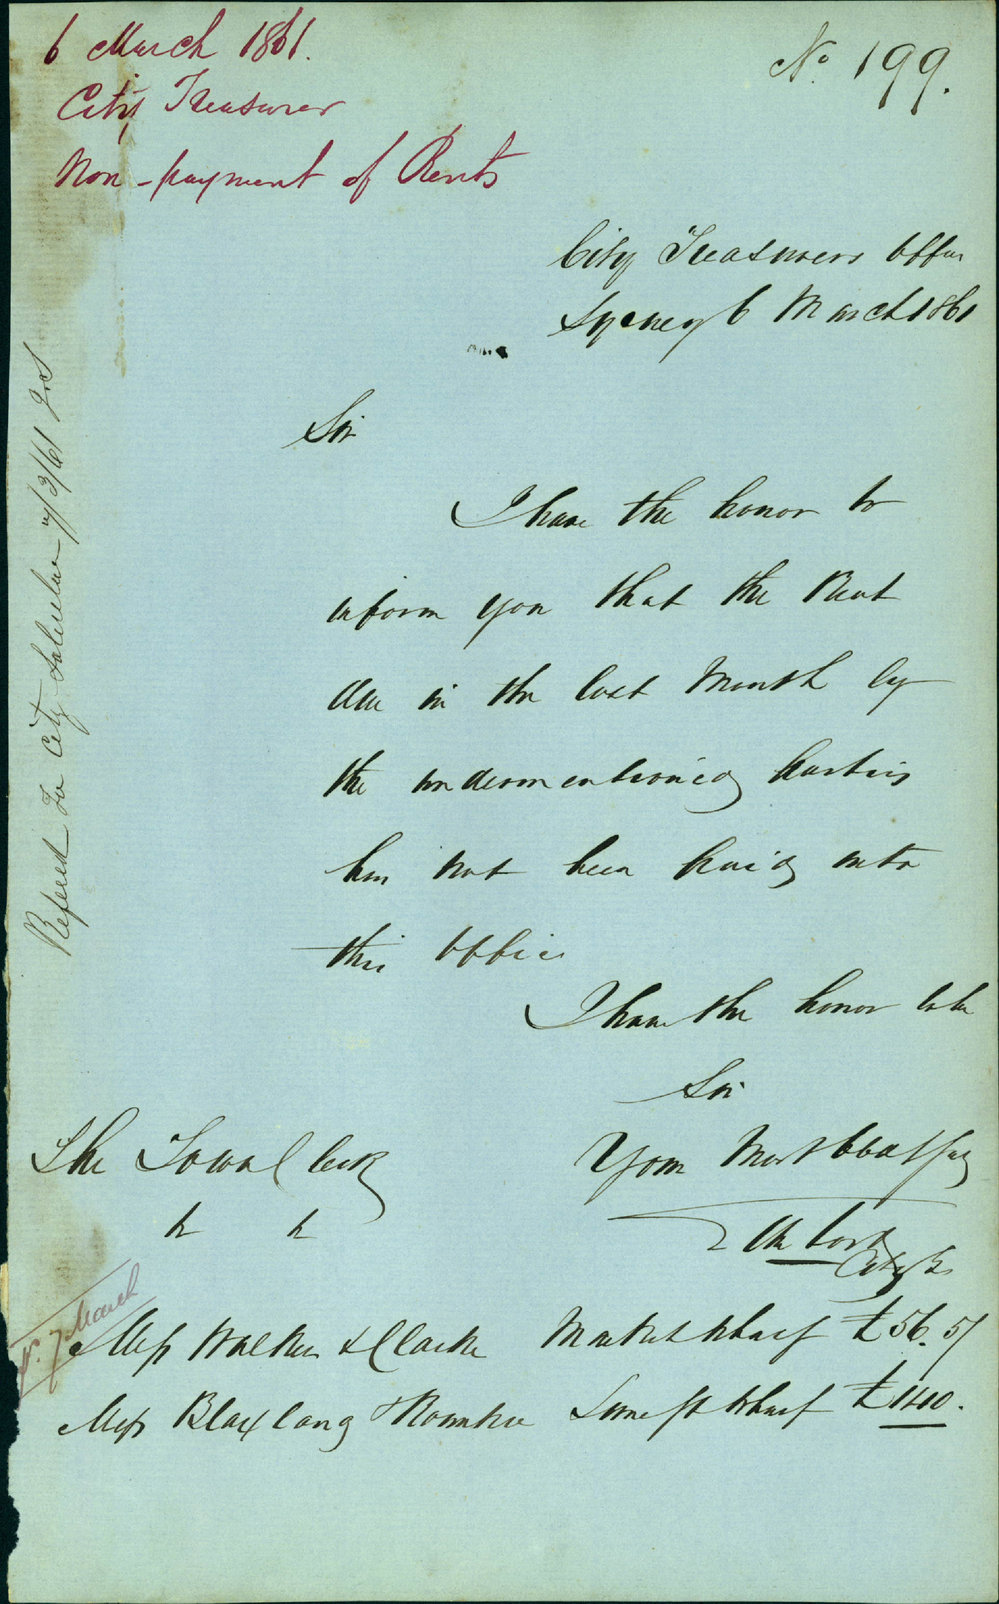 6 March 1861.
City Treasurer
Non-payment of Rents
No. 199.
City Treasurers Office
Sydney 6 March 1861
Sir
I have the honor to
inform you that the Rent
due in the last Month by
the undermentioned parties
has not been paid into
this Office
I have the honor to be
Sir
Your Most Obdt Sert
City Tr
The Town Clerk
Messrs Walker & Clarke Market Wharf £56.5/
Messrs Blaxland & Rountree Lime St Wharf £140.
Refered to City Solicitor 7/3/61
7 March